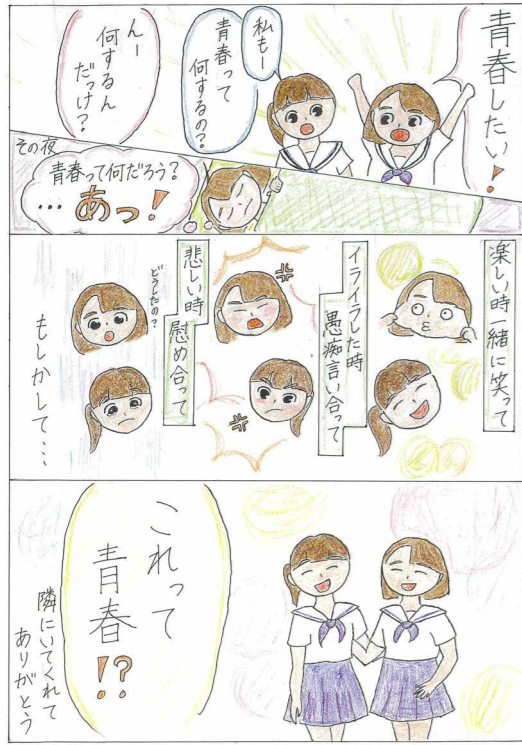 青春したい!
私もー
青春って
何するの?
んー
何するん
だっけ?
その夜
青春って何だろう?
…あっ!
楽しい時一緒に笑って
イライラした時
愚痴言い合って
悲しい時慰め合って
どうしたの?
もしかして…
これって
青春!?
隣にいてくれて
ありがとう